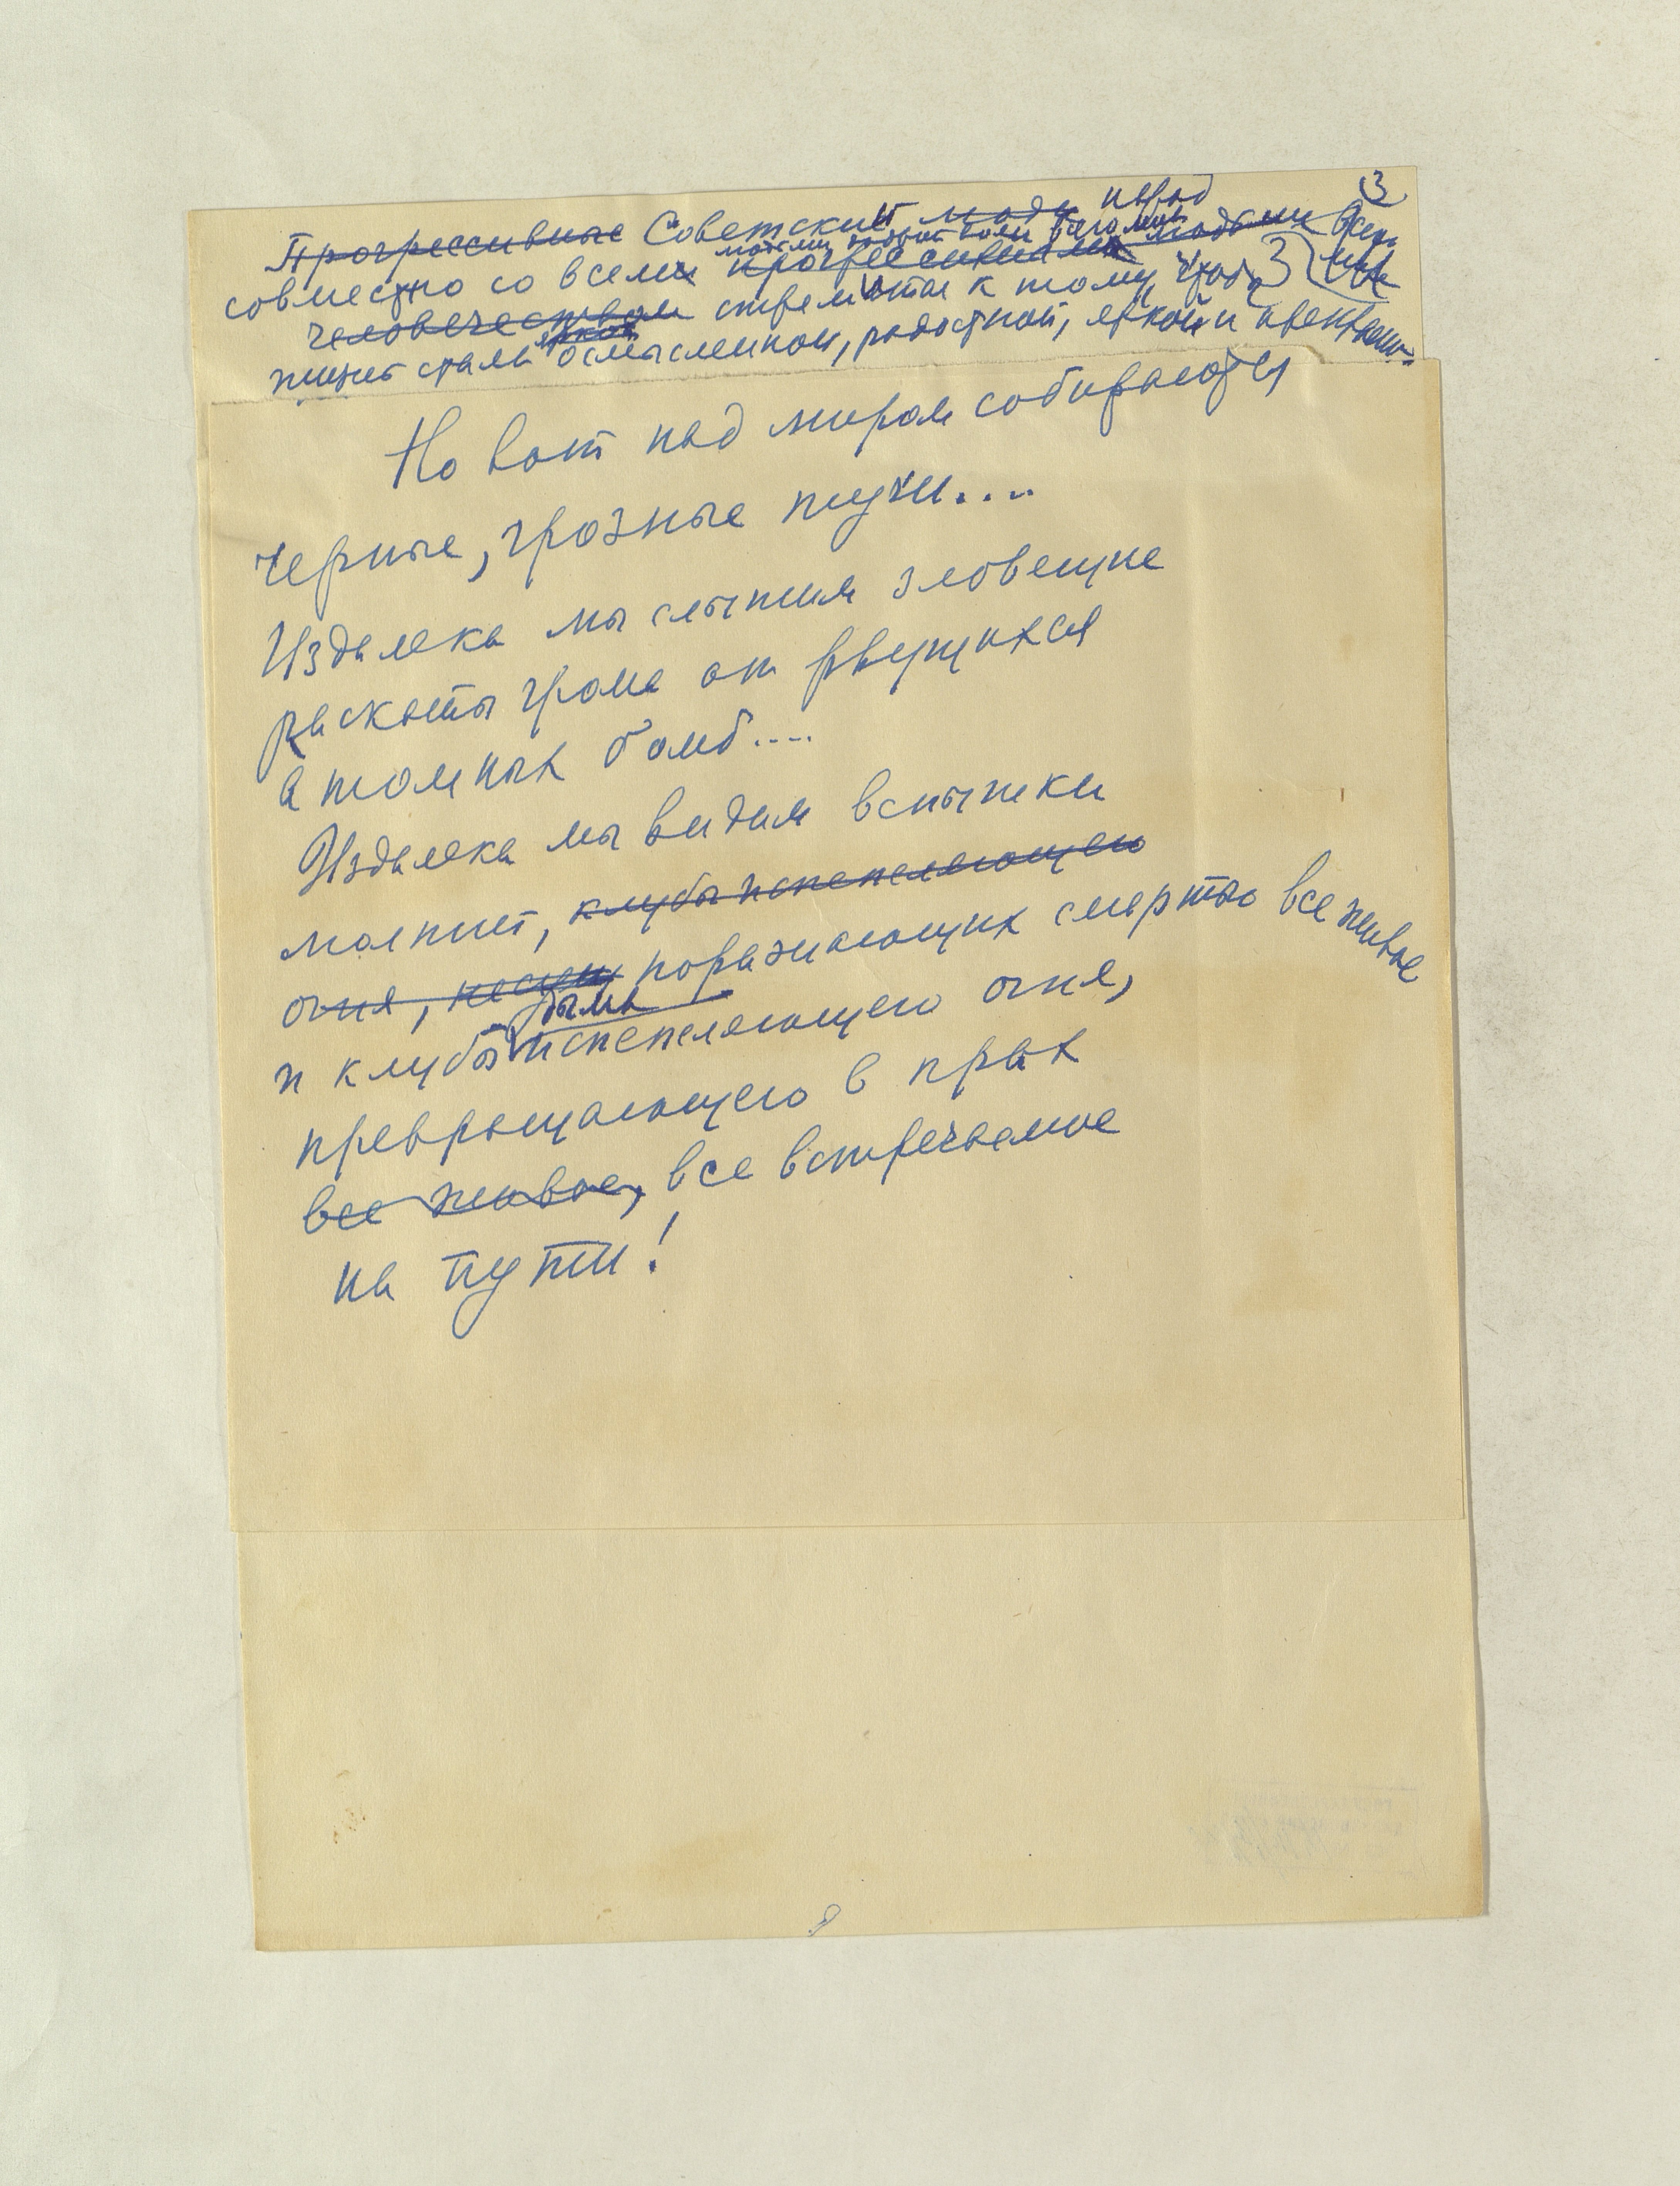 3
Прогрессивные Советский люди народ
людьми доброй воли всего мира
совместно со всеми прогрессивными людьми
человечеством стремится к тому, чтоб
жизнь стала яркой осмысленной, радостной, яркой и
Но вот над миром собираются
черные, грозные тучи....
Издалека мы слышим зловещие
раскаты грома от рвущихся
атомных бомб....
Издалека мы видим вспышки
молний, клубы испепеляющего
огня, несущ поражающих смертью все живое
дыма
и клубы испепеляющего огня,
превращающего в прах
все живое, все встречаемое
на пути!